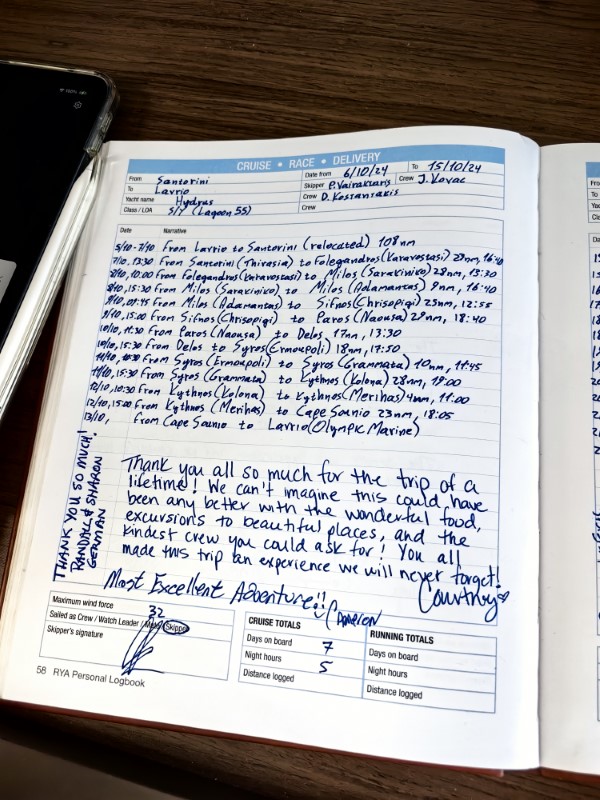 CRUISE • RACE • DELIVERY
From Santorini
To Lavrio
Yacht name Hydrus
Class / LOA S/Y (Lagoon 55)
Date from 6/10/24 To 15/10/24
Skipper P. Crew J. Kovac
Crew D.
Crew
Date Narrative
5/10-7/10 From Lavrio to Santorini (relocated) 108nm
7/10, 13:30 From Santorini (Thirasia) to Folegandros (Karavostasi) 16:40
8/10, 10:00 From Folegandros (Karavostasi) to Milos (Sarakiniko) 28nm, 13:30
8/10, 15:30 From Milos (Sarakiniko) to Milos (Adamantas) 9nm, 16:40
9/10, From Milos (Adamantas) to Sifnos (Chrisopigi) 25nm, 12:55
9/10, 15:00 From Sifnos (Chrisopigi) to Paros (Naousa) 29nm, 18:40
10/10, 11:30 From Paros (Naousa) to Delos, 17nm, 13:30
10/10, 15:30 From Delos to Syros (Ermoupoli) 18nm, 17:50
11/10, 10:30 From Syros (Ermoupoli) to Syros (Grammata) 10nm, 11:45
11/10, 15:30 From Syros (Grammata) to Kythnos (Kolona) 28nm, 19:00
12/10, 10:30 From Kythnos (Kolona) to Kythnos (Merihas) 4nm, 11:00
12/10, 15:00 From Kythnos (Merihas) to Cape Sounio 23nm, 18:05
13/10, From Cape Sounio to Lavrio (Olympic Marine)
THANK YOU SO MUCH!
RANDALL & SHARON
GERMAN
Thank you all so much for the trip of a
lifetime! We can't imagine this could have
been any better with the wonderful food,
excursions to beautiful places, and the
kindest crew you could ask for! You all
made this trip an experience we will never forget!
Courtney
Most Excellent Adventure!!
Cameron
Maximum wind force 32
Sailed as Crew / Watch Leader / Mate / Skipper
Skipper's signature
CRUISE TOTALS
Days on board 7
Night hours
Distance logged 5
RUNNING TOTALS
Days on board
Night hours
Distance logged
58 RYA Personal Logbook